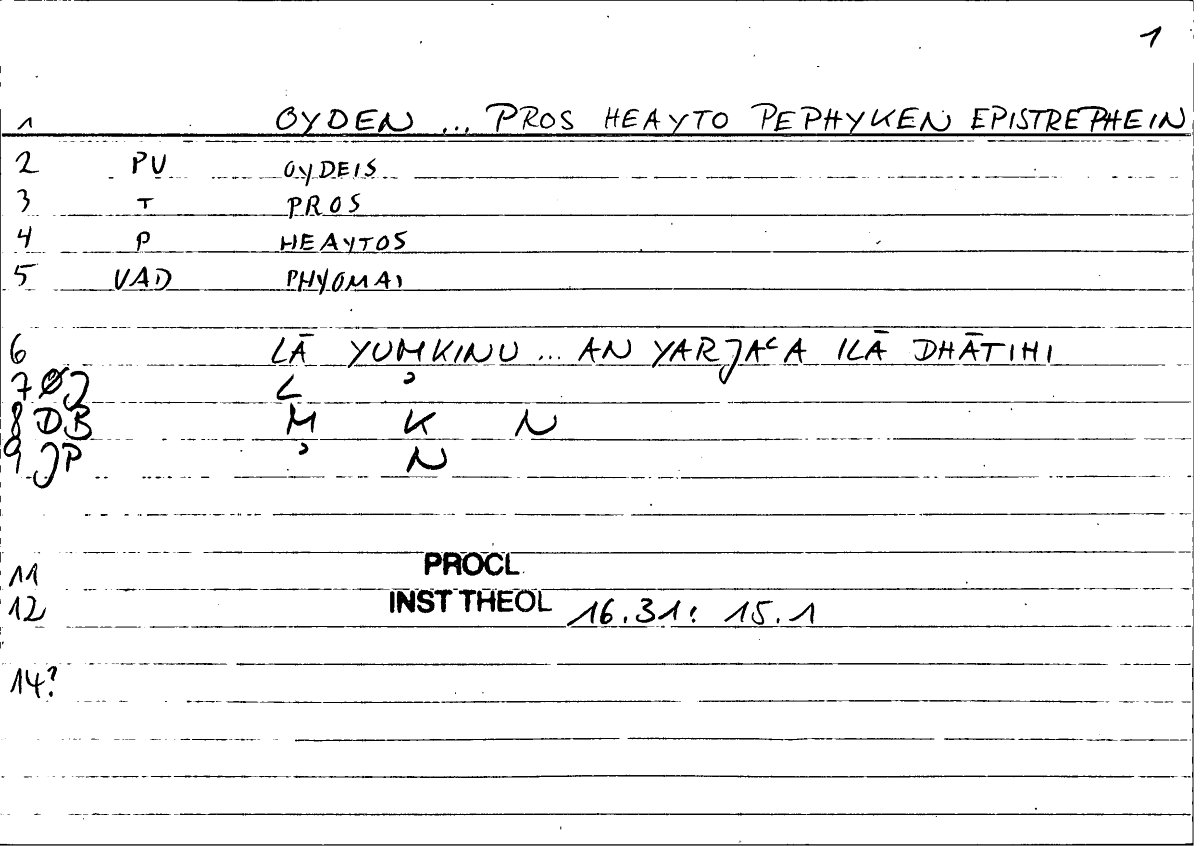 1
1 OYDEN ... PROS HEAYTO PEPHYKEN EPISTREPHEIN
2 PU OYDEIS
3 T PROS
4 P HEAYTOS
5 VAD PHYOMAI
6 LĀ YUMKINU ... AN YARJAʿA ILĀ DHĀTIHI
7 ØJ L ʾ
8 DB M K N
9 JP ʾ N
11 PROCL
12 INST THEOL 16.31: 15.1
14?